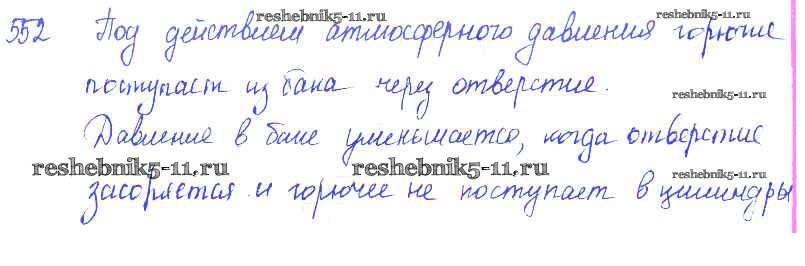 reshebnik5-11.ru
552 Под действием атмосферного давления горючее
поступает из бака через отверстие.
reshebnik5-11.ru
Давление в баке уменьшается, когда отверстие
reshebnik5-11.ru reshebnik5-11.ru reshebnik5-11.ru
засоряется и горючее не поступает в цилиндры